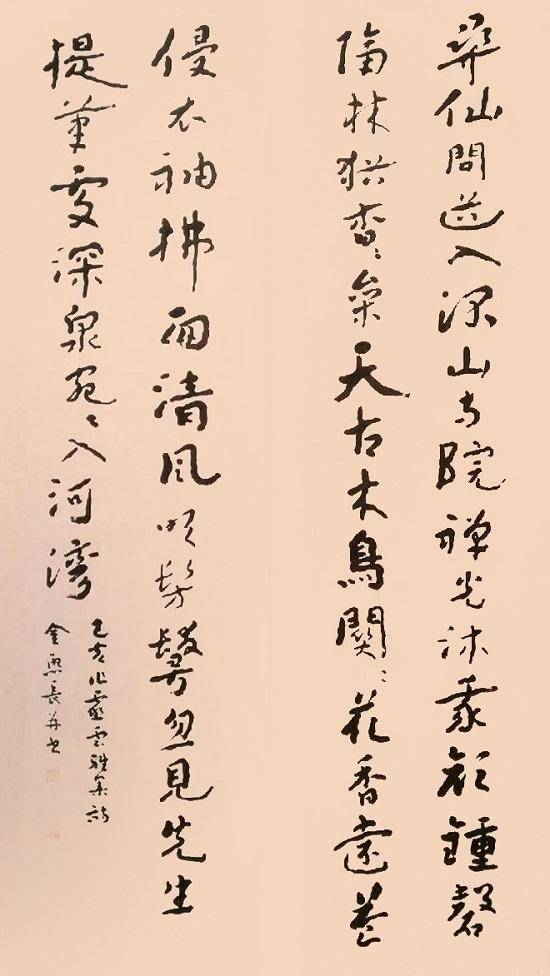 尋仙問道入深山寺院禅光沐我顏鍾磬
隔林猶杳杳參天古木鳥關關花香遠
侵衣袖拂面清風吹鬓鬟忽見先生
提筆處深泉宛宛入河灣
己亥作虛雲雅集詩
金熙長并書